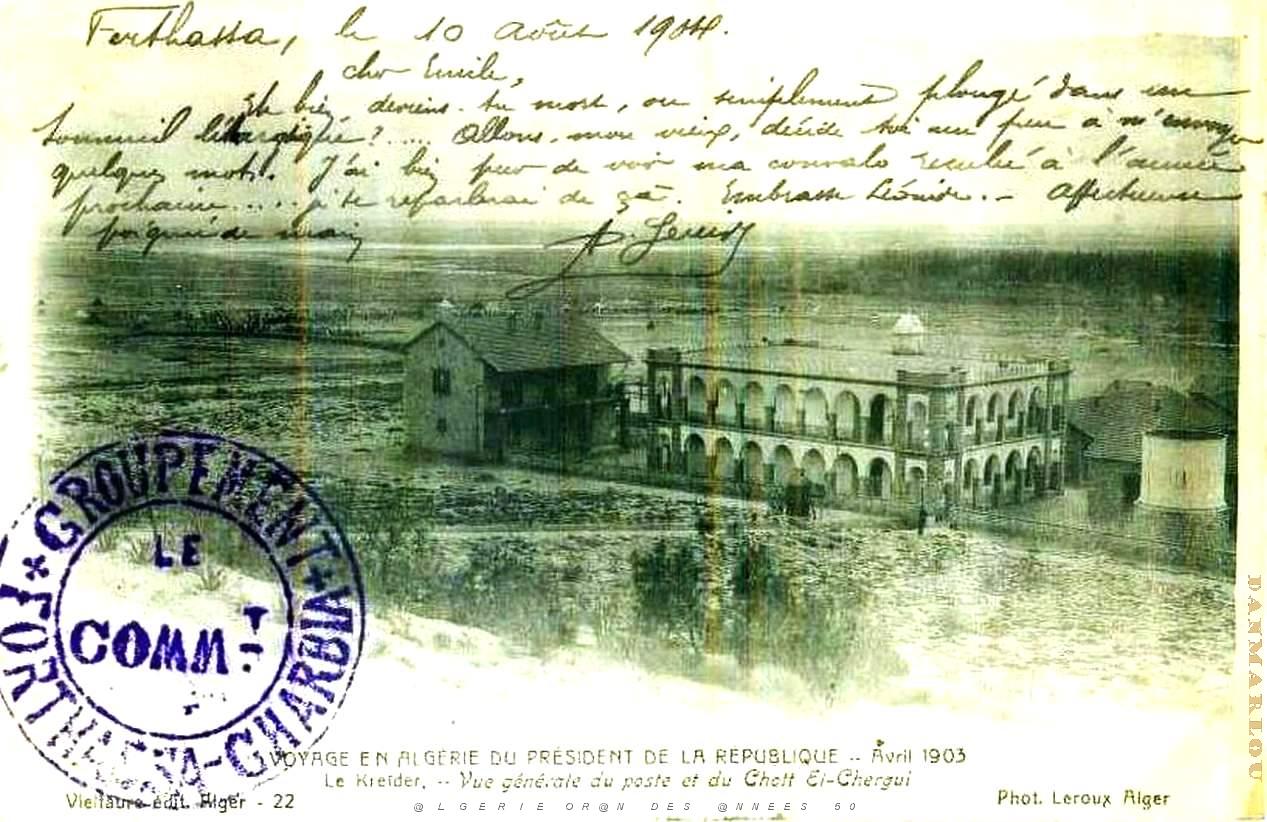 Forthassa, le 10 Août 1904.
cher Emile,
Eh bien, deviens-tu mort, ou simplement plongé dans un
sommeil léthargique?..... Allons, mon vieux, décide toi un peu à m'envoyer
quelques mots. J'ai bien peur de voir ma convalo reculée à l'année
prochaine..... je te reparlerai de ça. Embrasse Léonide.- Affectueuse
poignée de main
GROUPEMENT
LE
COMMT
FORTHASSA-GHARBIA
VOYAGE EN ALGÉRIE DU PRÉSIDENT DE LA RÉPUBLIQUE -- Avril 1903
Le Kreider. -- Vue générale du poste et du Chott El-Chergui
Vieillaure édit. Alger - 22
@LGERIE OR@N DES @NNEES 50
Phot. Leroux Alger
DANMARLOU